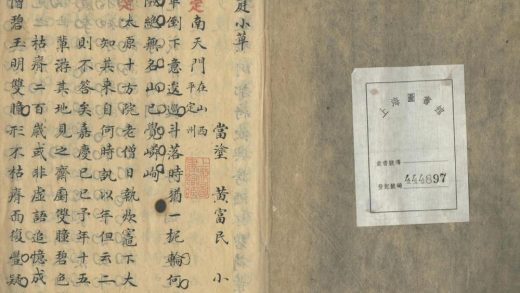 上海圖書館
登記號碼 444897
庭小草
當塗 黃富民 小
定 南天門 在山西
平定州
車倒下意逡巡斗落時猶一軛輪何
險絕無名山已覺崢峋
定 太原十方院老僧日執炊竈下大
知其來自何時訊以年但云二
則不答矣嘉慶己巳予年十五
輩游其地見之齋廚雙瞳碧色
枯瘠二百歲或非虛語追憶成
僧碧玉明雙瞻形不枯瘠而復豐疑